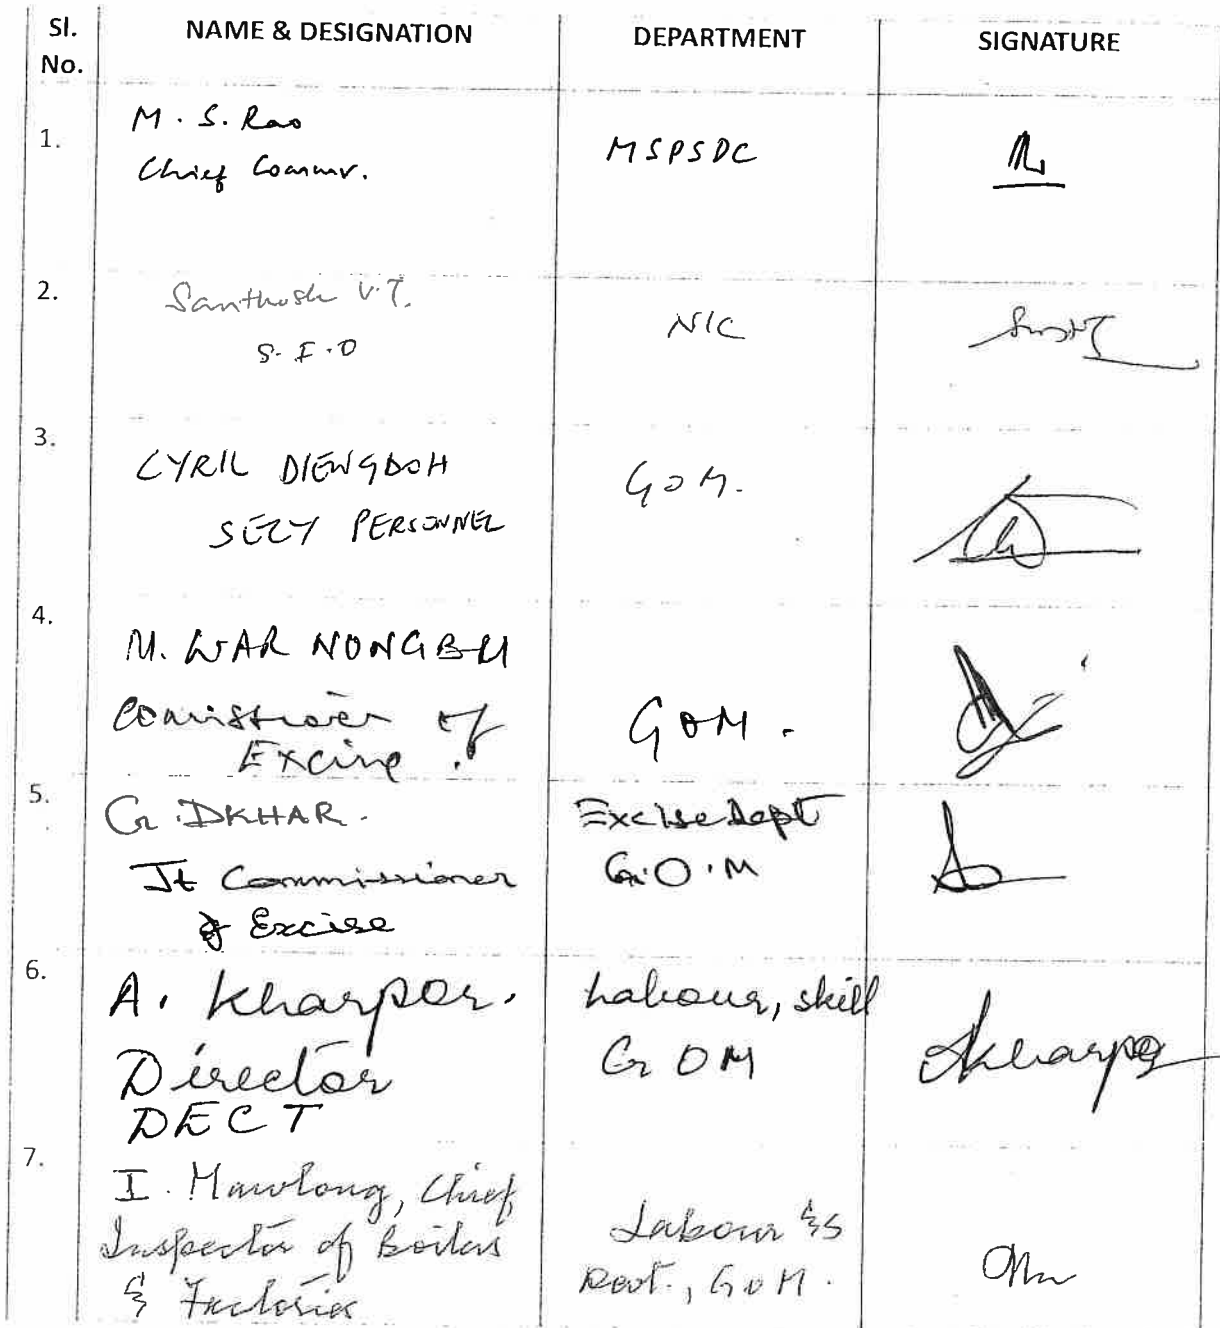 Sl. No.
NAME & DESIGNATION
DEPARTMENT
SIGNATURE
1.
M. S. Rao
Chief Commr.
MSPSDC
2.
Santhosh V.T.
S.I.O
NIC
3.
CYRIL DIENGDOH
SECY PERSONNEL
GOM.
4.
M. WAR NONGBRI
Comissioner of
Excise.
GOM.
5.
G. DKHAR.
Jt Commissioner
of Excise
Excise Dept
G.O.M
6.
A. Kharpor.
Director
DECT
Labour, skill
GOM
Akharpor
7.
I. Mawlong, Chief
Inspector of Boilers
& Factories
Labour
GOM.